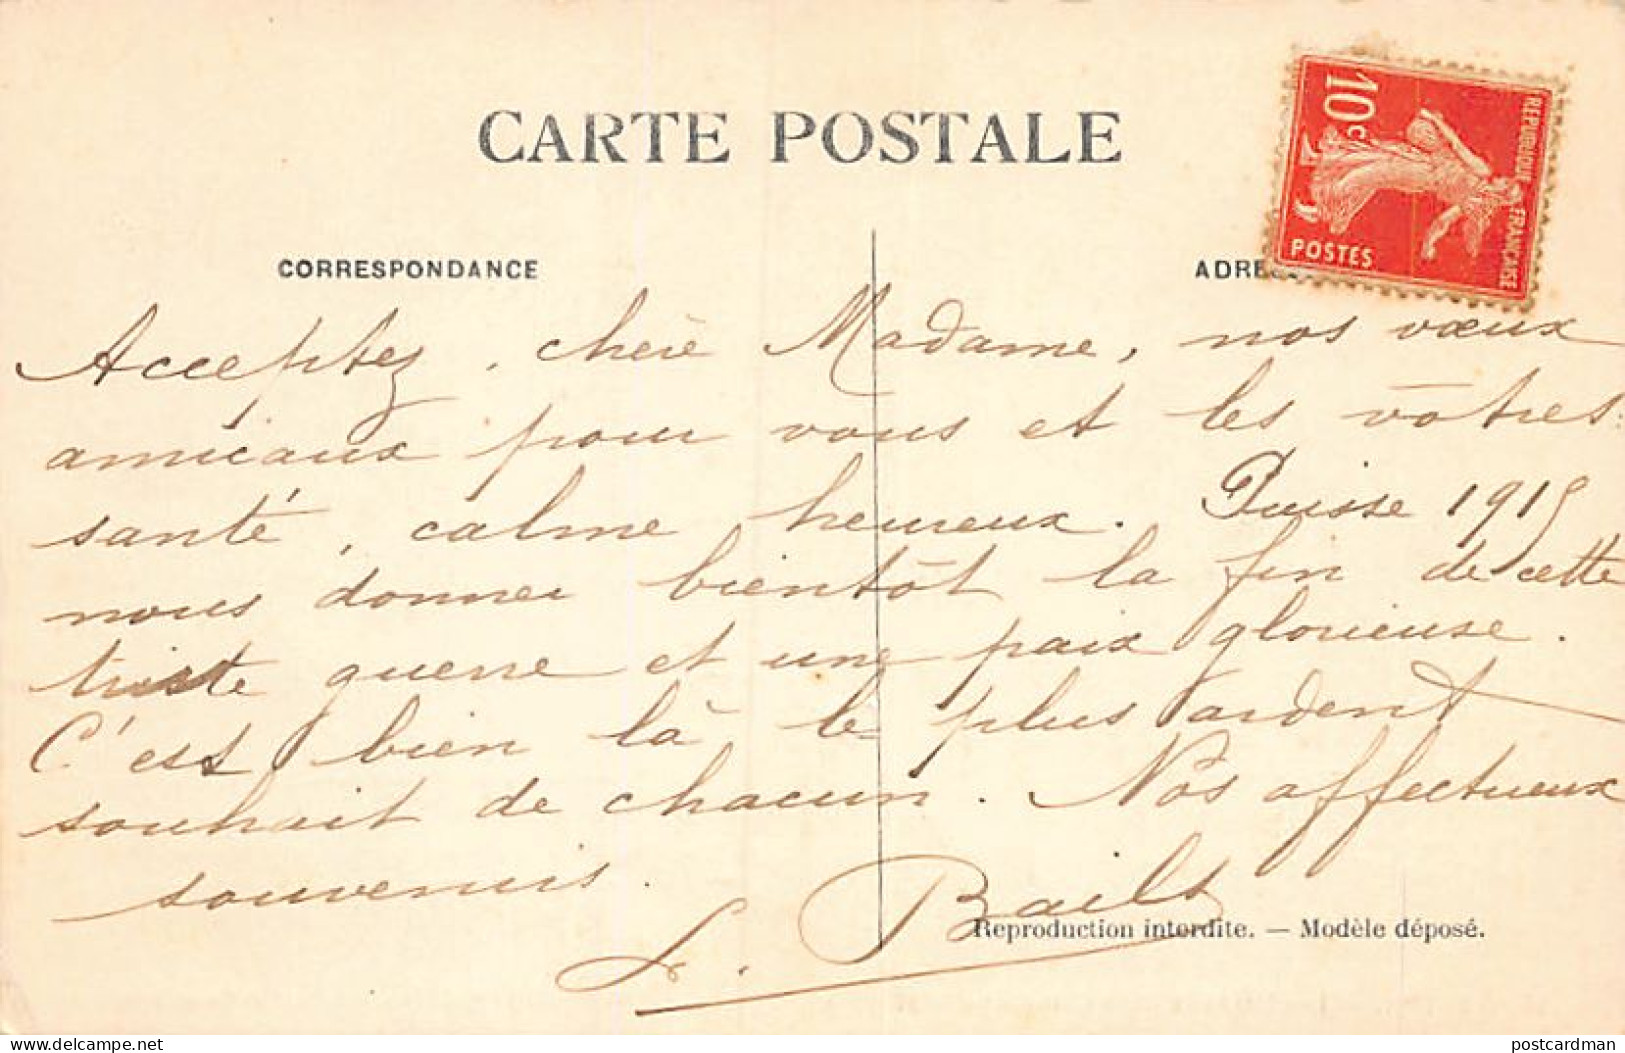 CARTE POSTALE
10c
REPUBLIQUE FRANÇAISE
POSTES
CORRESPONDANCE
ADRE
Acceptez, chère Madame, nos vœux
amicaux pour vous et les vôtres:
santé, calme heureux. Puisse 1915
nous donner bientôt la fin de cette
triste guerre et une paix glorieuse.
C'est bien là le plus ardent
souhait de chacun. Nos affectueux
souvenirs.
Reproduction interdite. — Modèle déposé.
delcampe.net
postcardman